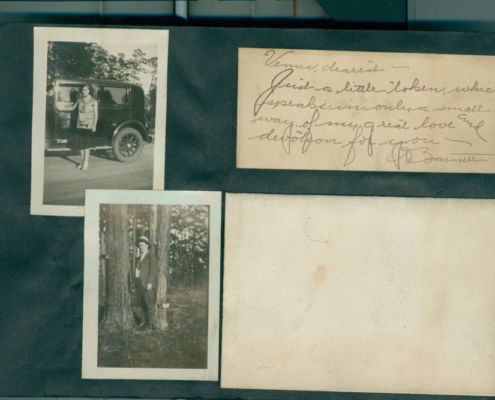 Venus, dearest —
Just a little token, whic
speaks in only a small
way of my great love and
devotion for you —
Barnett